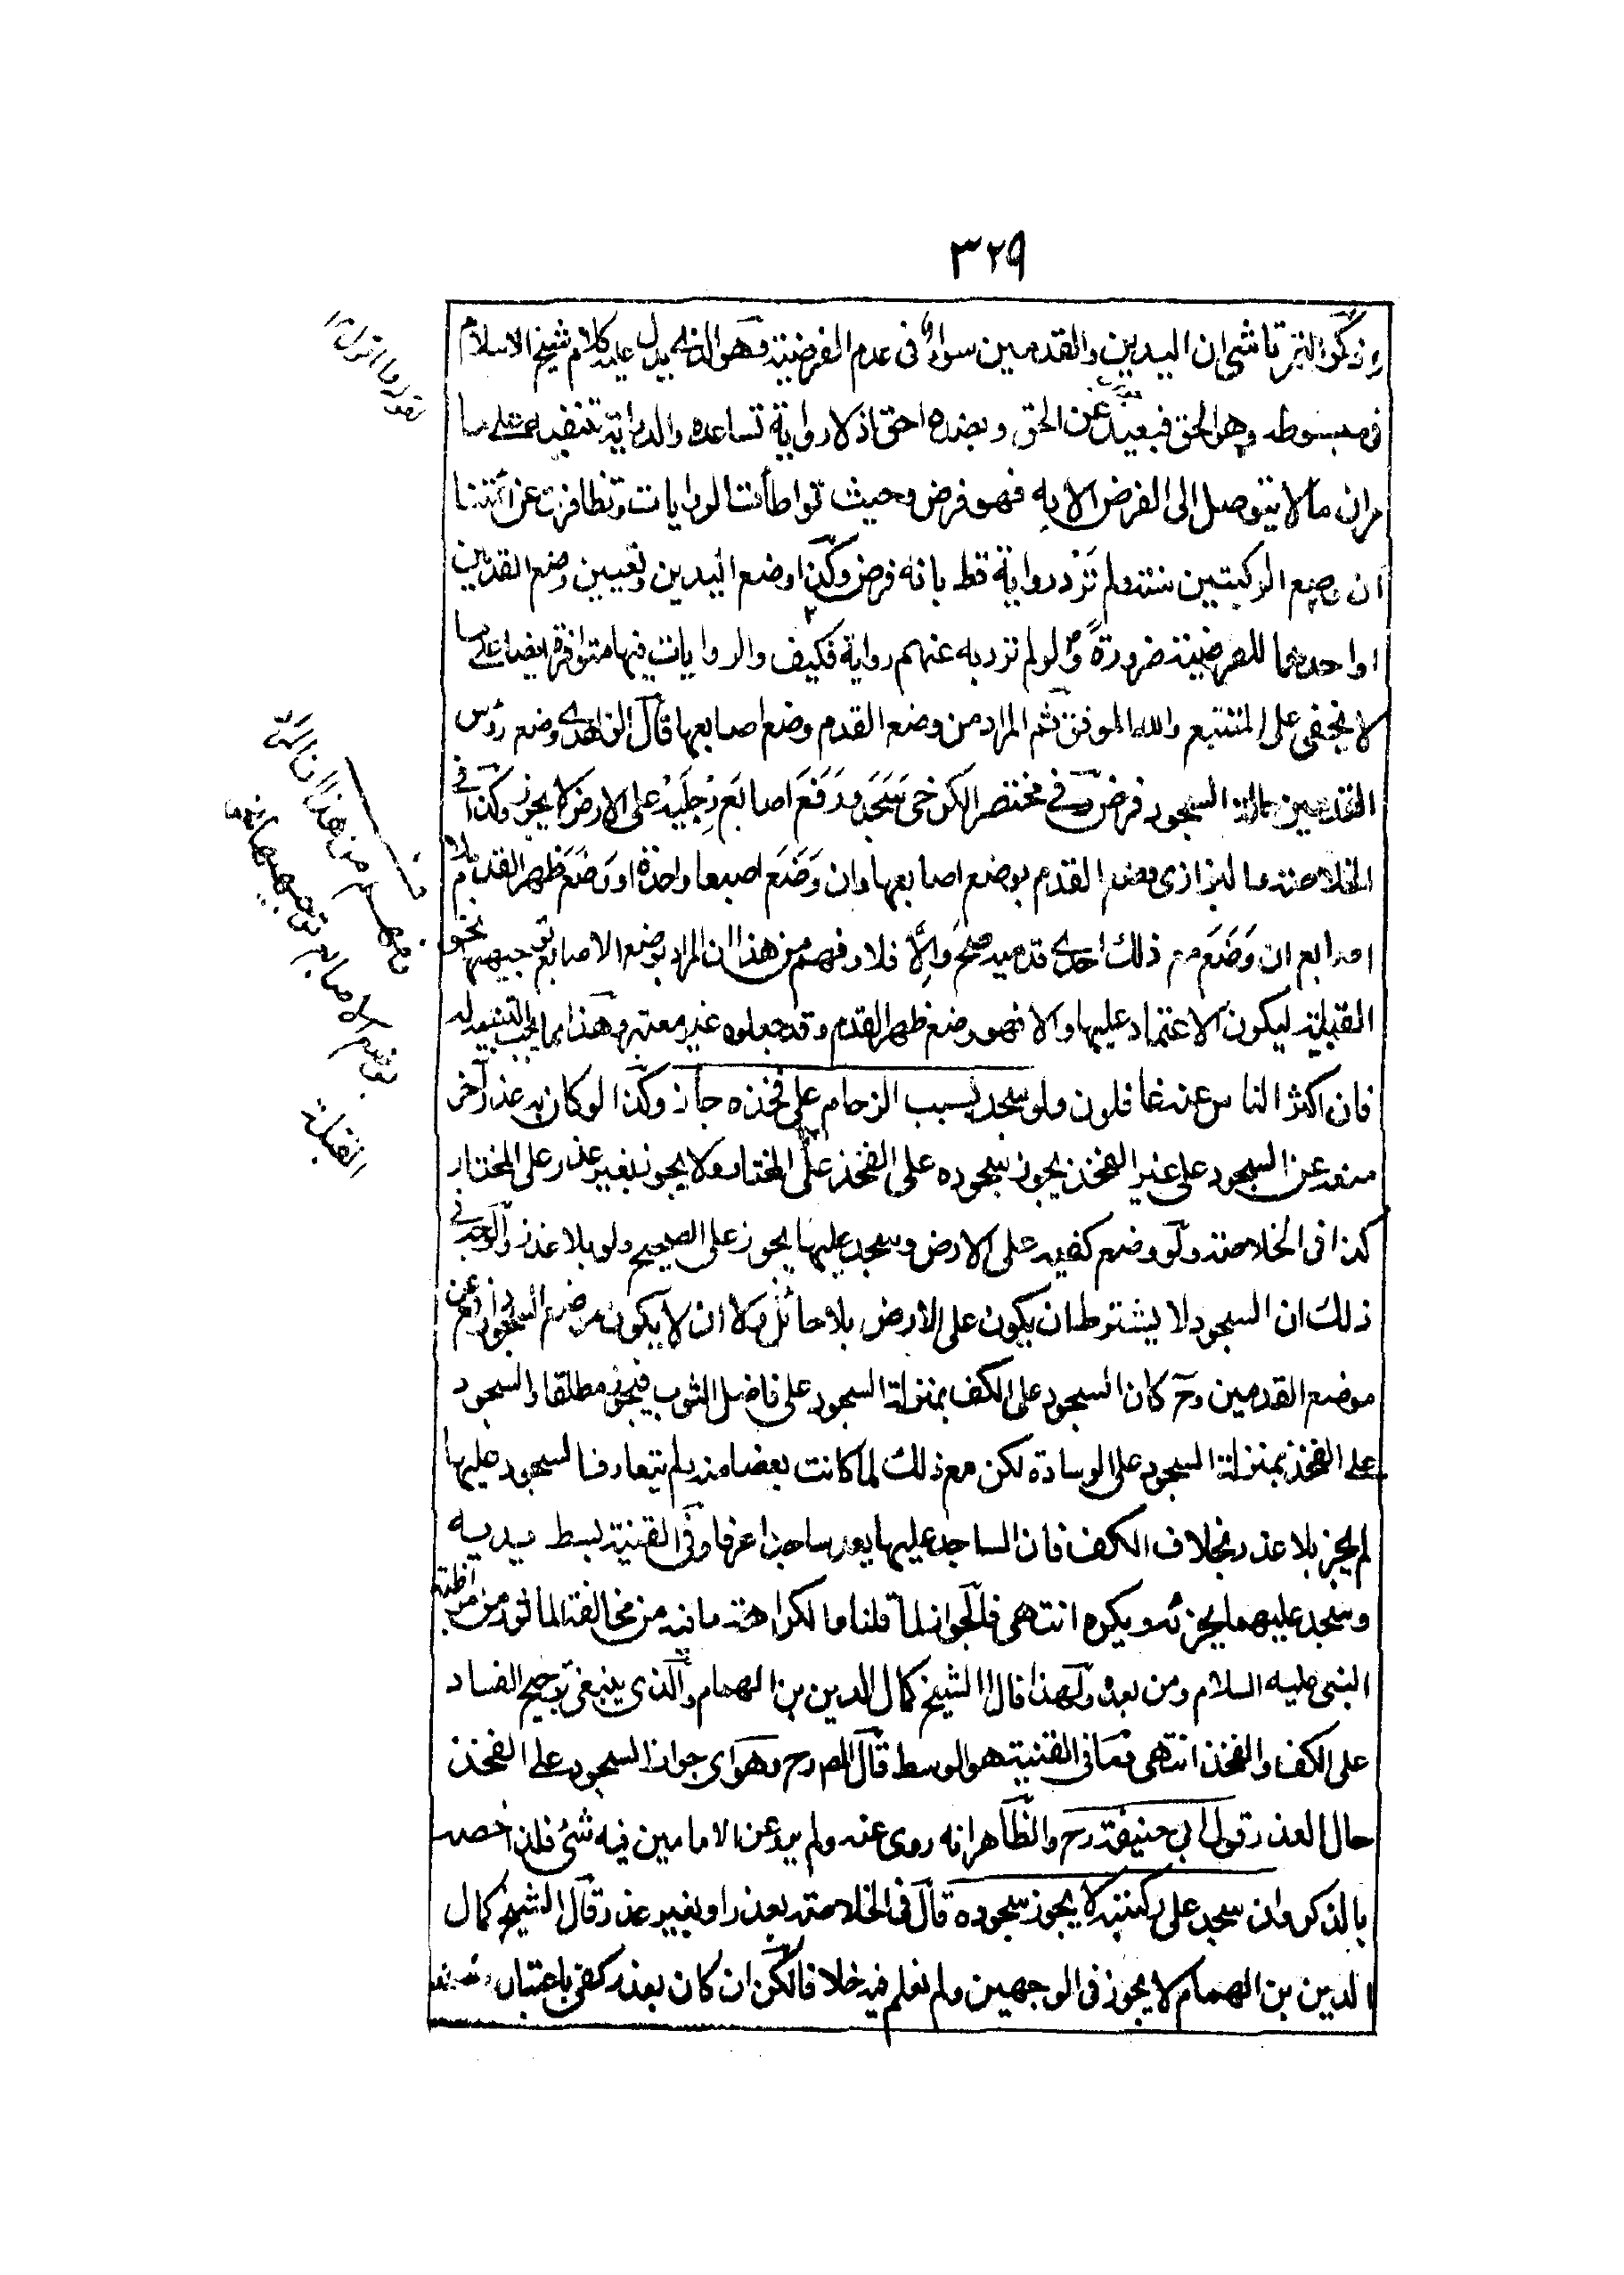 ٣٢٩
وذكر التمرتاشى ان اليدين والقدمين سواء فى عدم الفرضية وهو الذى يدل عليه كلام شيخ الاسلام
فى مبسوطه وهو الحق فبعيد عن الحق وبضده احق اذ لا رواية تساعده والدراية تنفيه على ما
مر ان ما لا يتوصل الى الفرض الا به فهو فرض وحيث تواطأت الروايات وتظافرت عن ائمتنا
ان وضع الركبتين سنة ولم ترد رواية قط بانه فرض وكذا وضع اليدين وتعيين وضع القدمين
او احدهما للفرضية ضرورة ولو لم ترد به عنهم رواية فكيف والروايات فيها متوافرة ايضا على ما
لا يخفى على المتتبع والله الموفق ثم المراد من وضع القدم وضع اصابعها قال الزاهدى وضع رؤس
القدمين حالة السجود فرض وفى مختصر الكرخى سَجَدَ ورَفَعَ اصابَع رِجلَيْه على الارض لا يجوز وكذا فى
الخلاصة والبزازى وضع القدم بوضع اصابعها وان وَضَعَ اصبعا واحدة او وَضَعَ ظهر القدم بلا
اصابع ان وَضَعَ مع ذلك احدى قدميه صحّ وإلّا فلا وفهم من هذا ان المراد بوضع الاصابع توجيهها نحو
القبلة ليكون الاعتماد عليها والا فهو وضع ظهر القدم وقد جعلوه غير معتبر وهذا مما يجب التنبه له
فان اكثر الناس عنه غافلون ولو سجد بسبب الزحام على فخذه جاز وكذا لو كان به عذر آخر
منعه عن السجود على غير الفخذ يجوز سجوده على الفخذ على المختار ولا يجوز بغير عذر على المختار
كذا فى الخلاصة ولو وضع كفيه على الارض وسجد عليها يجوز على الصحيح ولو بلا عذر والوجه فى
ذلك ان السجود لا يشترط ان يكون على الارض بلا حائل ولا ان لا يكون موضع السجود ارفع عن
موضع القدمين وح كان السجود على الكف بمنزلة السجود على فاضل الثوب فيجوز مطلقا والسجود
على الفخذ بمنزلة السجود على الوسادة لكن مع ذلك لما كانت بعضا منه لم يتعارف السجود عليها
لم يجز بلا عذر بخلاف الكف فان الساجد عليها يعد ساجدا عرفا وفى القنية بسط يديه
وسجد عليهما يجزئه ويكره انتهى فالجواز لما قلنا والكراهة لما فيه من مخالفة المأثور من مواظبة
النبى عليه السلام ومن بعده ولهذا قال الشيخ كمال الدين بن الهمام والذى ينبغى ترجيح الفساد
على الكف والفخذ انتهى فما فى القنية هو الوسط قال المص رح وهو اى جواز السجود على الفخذ
حال العذر قول ابى حنيفة رح والظاهر انه روى عنه ولم يرد عن الامامين فيه شئ فلذا خصه
بالذكر وان سجد على ركبتيه لا يجوز سجوده قال فى الخلاصة بعذر او بغير عذر قال الشيخ كمال
الدين بن الهمام لا يجوز فى الوجهين ولم نعلم فيه خلافا لكن ان كان بعذر كفى باعتبار
فهم من هذا ان المراد
بوضع الاصابع توجيهها نحو
القبلة